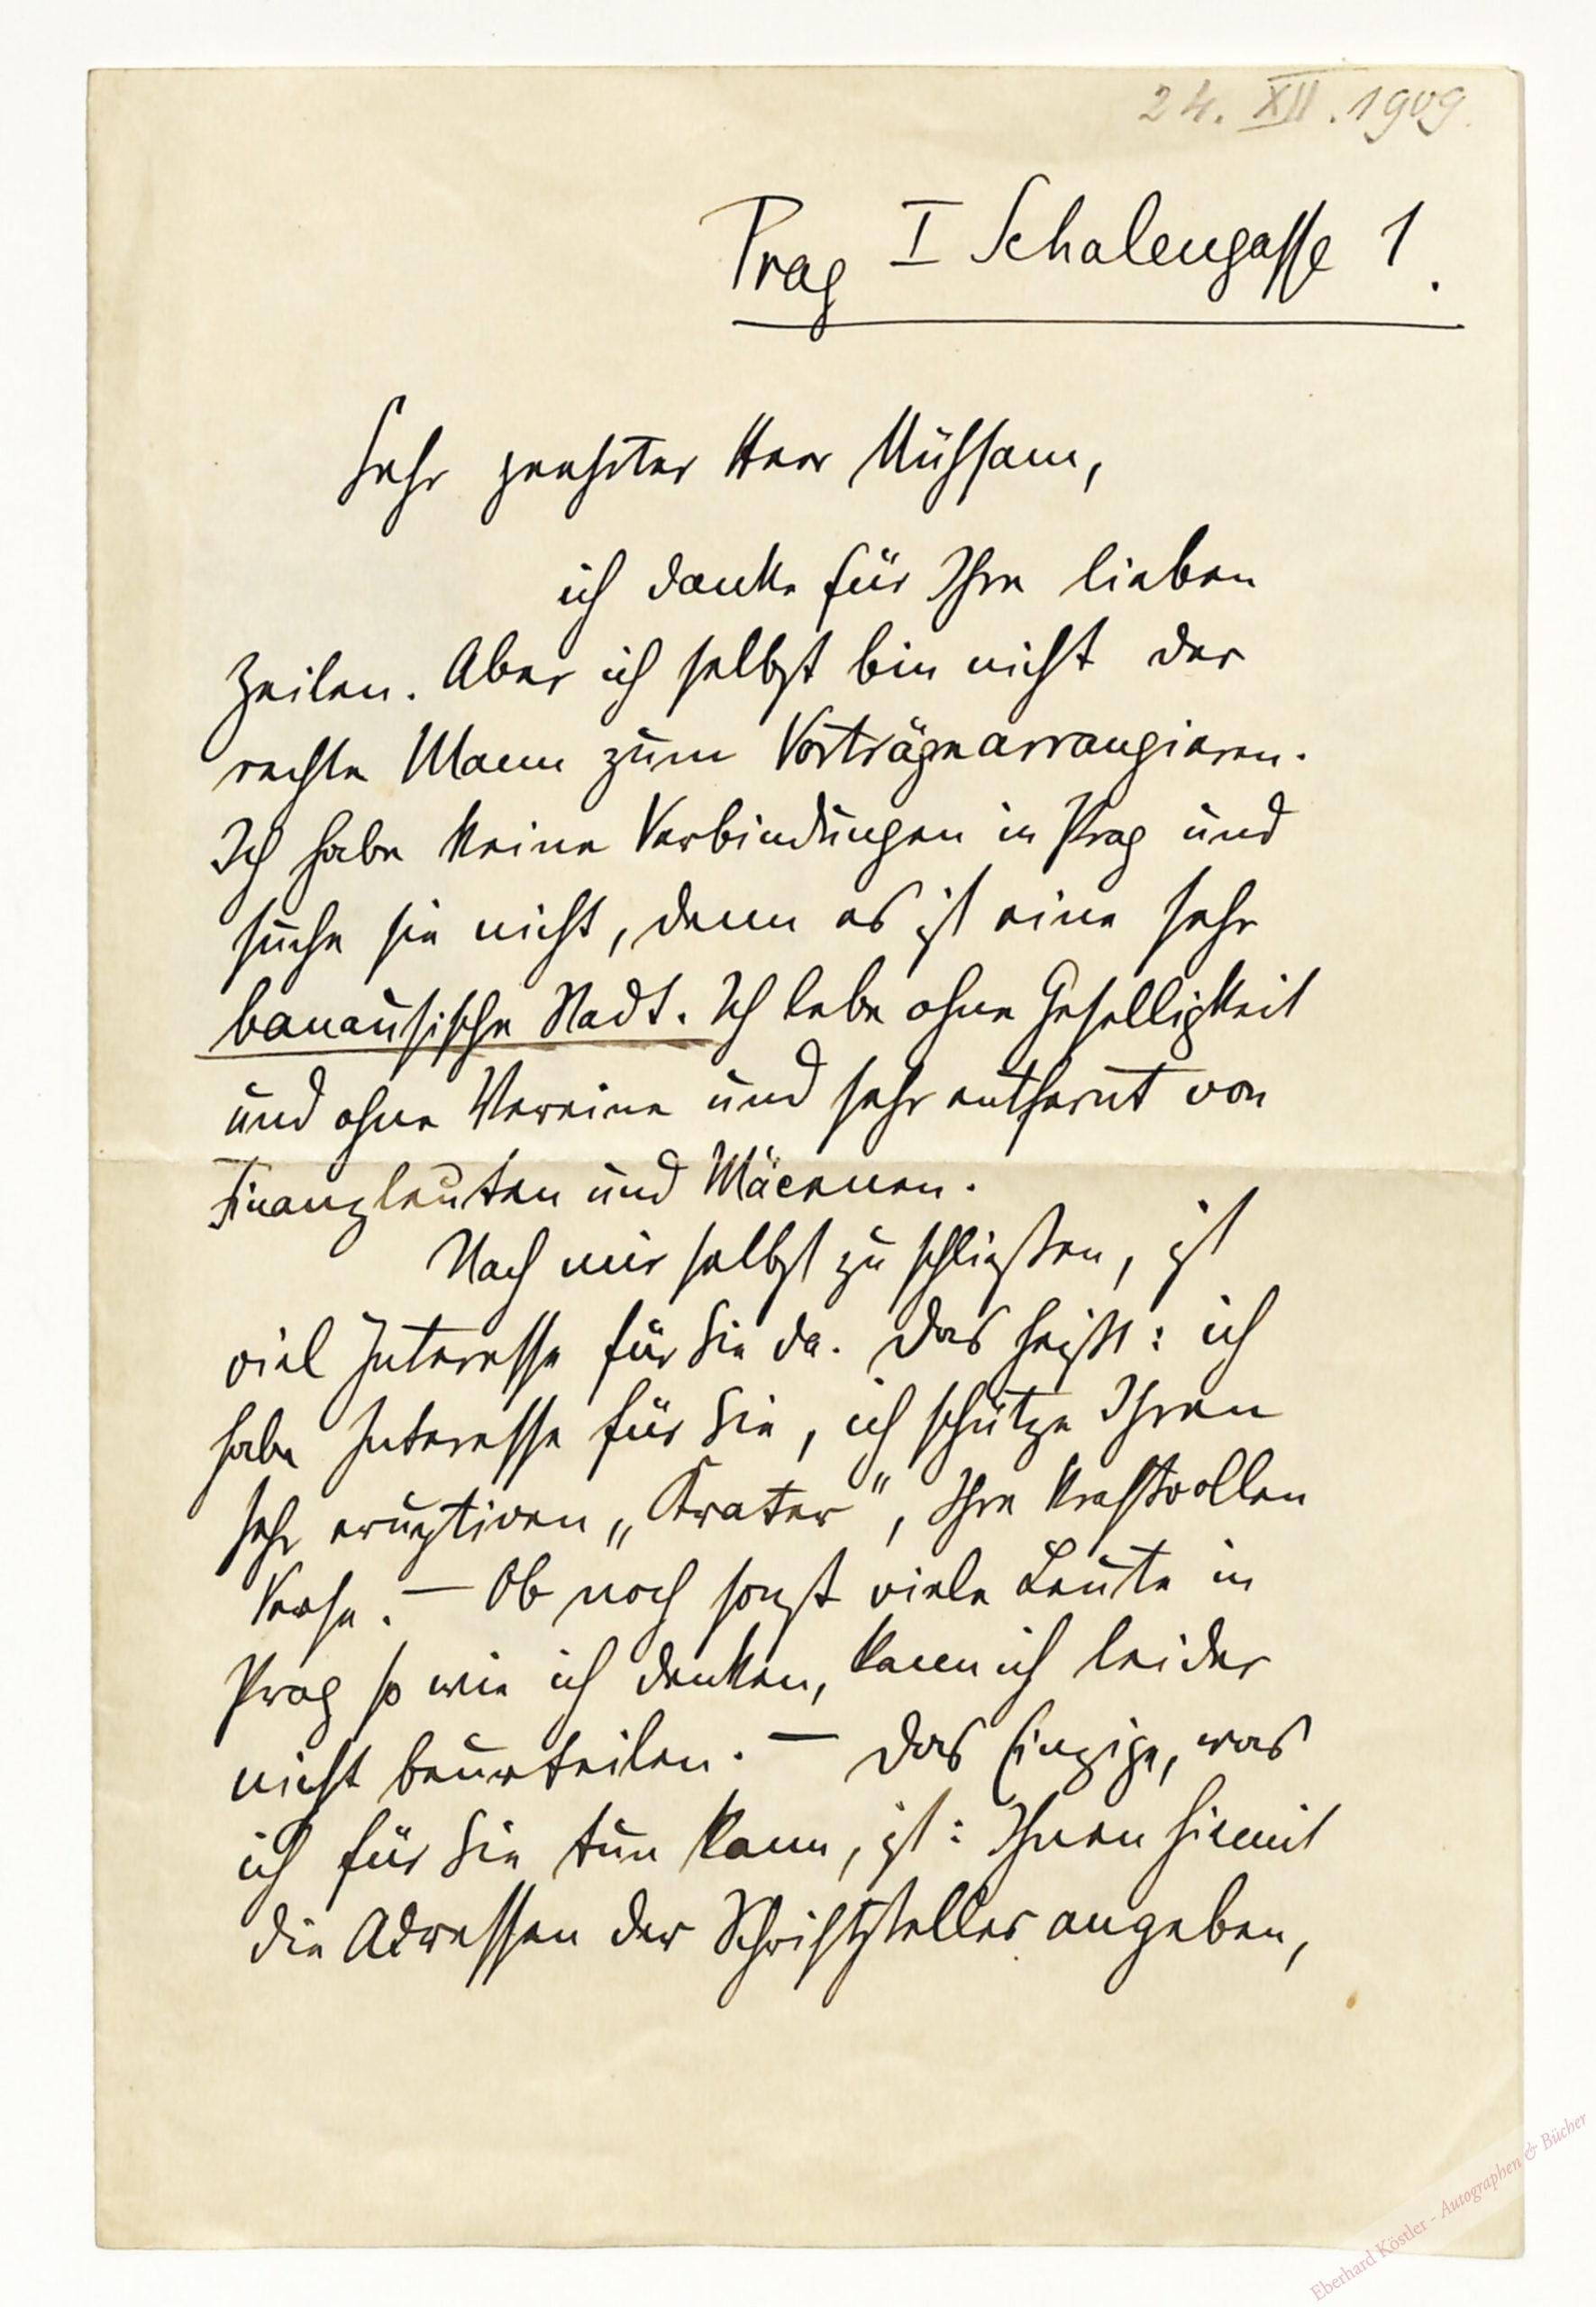 24. XII. 1909.
Prag I Schalengasse 1.
Sehr geehrter Herr Mühsam,
ich danke für Ihre lieben
Zeilen. Aber ich selbst bin nicht der
rechte Mann zum Vorträgearrangieren.
Ich habe keine Verbindungen in Prag und
suche sie nicht, denn es ist eine sehr
banausische Stadt. Ich lebe ohne Geselligkeit
und ohne Vereine und sehr entfernt von
Finanzleuten und Mäcenen.
Nach mir selbst zu schließen, ist
viel Interesse für Sie da. Das heißt: ich
habe Interesse für Sie, ich schätze Ihren
sehr eruptiven „Krater“, Ihre kraftvollen
Verse. — Ob noch sonst viele Leute in
Prag so wie ich denken, kann ich leider
nicht beurteilen. — Das Einzige, was
ich für Sie tun kann, ist: Ihnen hiemit
die Adressen der Schriftsteller angeben,
Eberhard Köstler - Autographen & Bücher